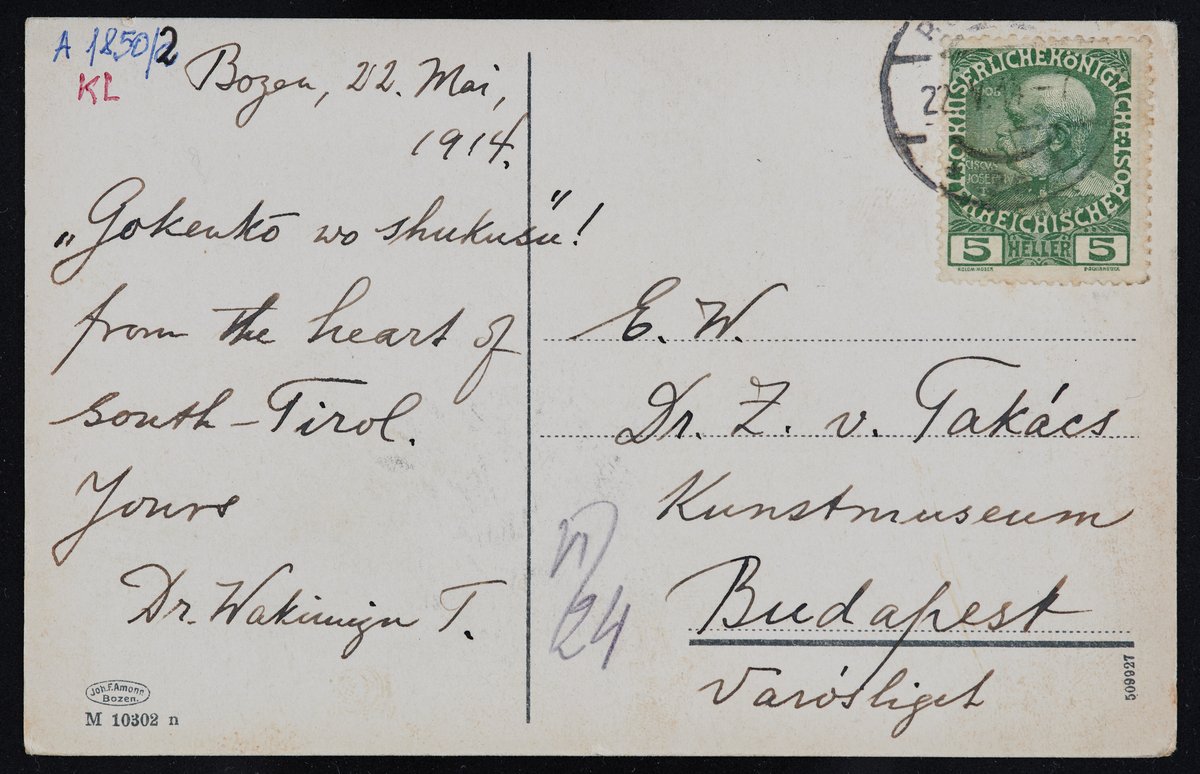 A 1850/2
KL
Bozen, 22. Mai,
1914.
„Gokenkō wo shukusu"!
from the heart of
South-Tirol.
Yours
Dr. Wakimizu T.
Joh. F. Amonn
Bozen.
M 10302 n
KAISERLICHE KÖNIGLICHE POST
ÖSTERREICHISCHE
5 HELLER 5
E. W.
Dr. Z. v. Takács
Kunstmuseum
Budapest
Városliget
VI/24
509927